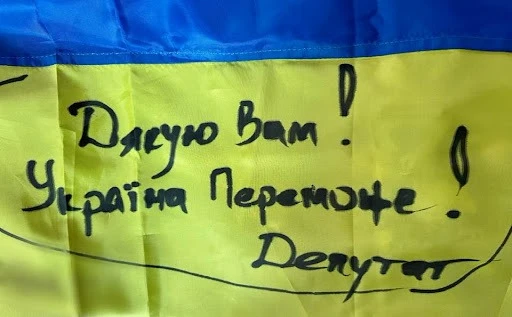 Дякую Вам!
Україна Переможе!
Депутат